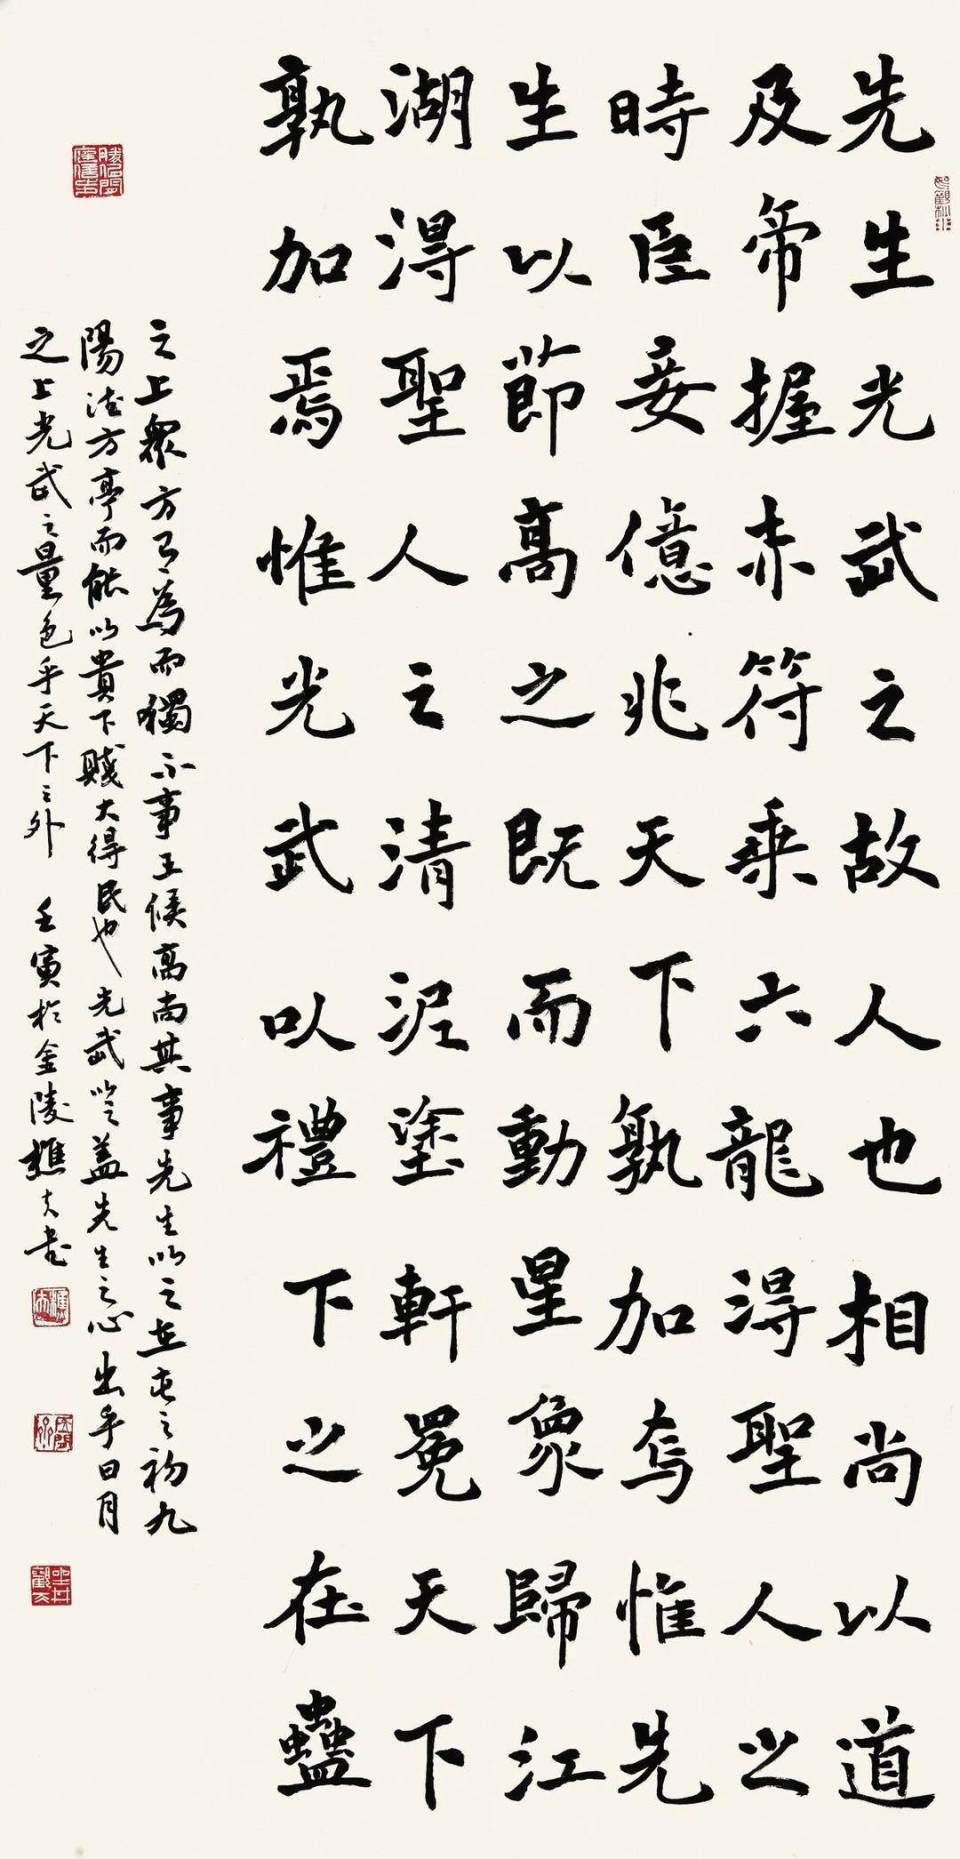 先生光武之故人也相尚以道
及帝握赤符乘六龍得聖人之
時臣妾億兆天下孰加焉惟先
生以節高之既而動星象歸江
湖得聖人之清泥塗軒冕天下
孰加焉惟光武以禮下之在蠱
之上眾方有為而獨不事王候高尚其事先生以之在屯之初九
陽德方亭而能以貴下賤大得民也光武以之蓋先生之心出乎日月
之上光武之量包乎天下之外 壬寅於金陵樵夫書